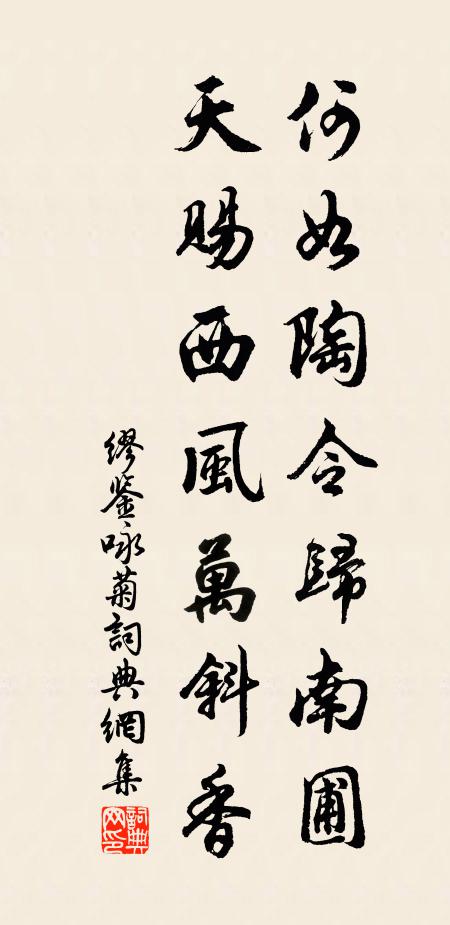 何如陶令歸南圃
天賜西風萬斜香
繆鉴咏菊詞典網集
詞典网印